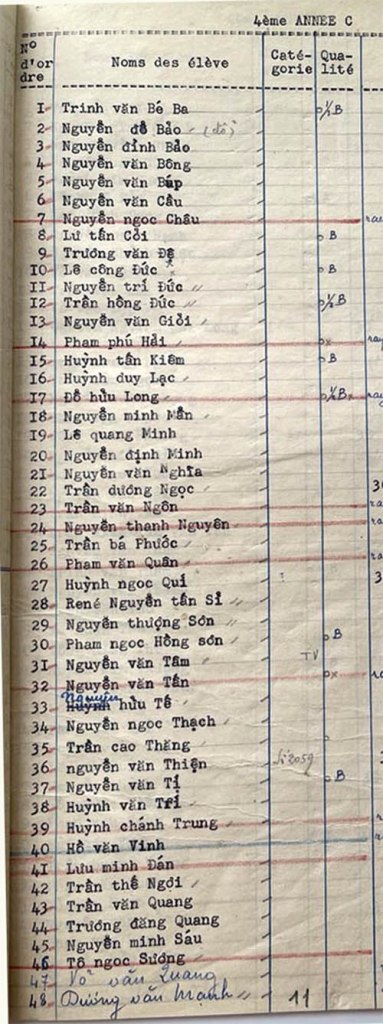 4ème ANNEE C
N° d'or dre Noms des élève Caté- gorie Qua- lité
1 Trinh văn Bé Ba ½ B
2 Nguyễn đễ Bảo (đô)
3 Nguyễn đình Bảo
4 Nguyễn văn Bông
5 Nguyễn văn Búp
6 Nguyễn văn Cầu
7 Nguyễn ngọc Châu
8 Lư tấn Cỏi B
9 Trương văn Đệ
10 Lê công Đức B
11 Nguyễn trí Đức
12 Trần hồng Đức ½ B
13 Nguyễn văn Giỏi
14 Phạm phú Hải x
15 Huỳnh tấn Kiêm B
16 Huỳnh duy Lạc
17 Đỗ hữu Long ½ B x
18 Nguyễn minh Mẫn
19 Lê quang Minh
20 Nguyễn định Minh
21 Nguyễn văn Nghĩa
22 Trần dương Ngọc
23 Trần văn Ngôn
24 Nguyễn thanh Nguyên
25 Trần bá Phước
26 Phạm văn Quân
27 Huỳnh ngọc Qui
28 René Nguyễn tấn Sĩ
29 Nguyễn thượng Sơn
30 Phạm ngọc Hồng sơn B
31 Nguyễn văn Tâm TV
32 Nguyễn văn Tấn x
33 Huỳnh Nguyễn hữu Tế
34 Nguyễn ngọc Thạch
35 Trần cao Thăng
36 nguyễn văn Thiện 2059
37 Nguyễn văn Tị B
38 Huỳnh văn Trí
39 Huỳnh chánh Trung
40 Hồ văn Vinh
41 Lưu minh Đán
42 Trần thế Ngời
43 Trần văn Quang
44 Trương đăng Quang
45 Nguyễn minh Sáu
46 Tô ngọc Sương
47 Võ văn Quang
48 Dương văn Mạnh 11